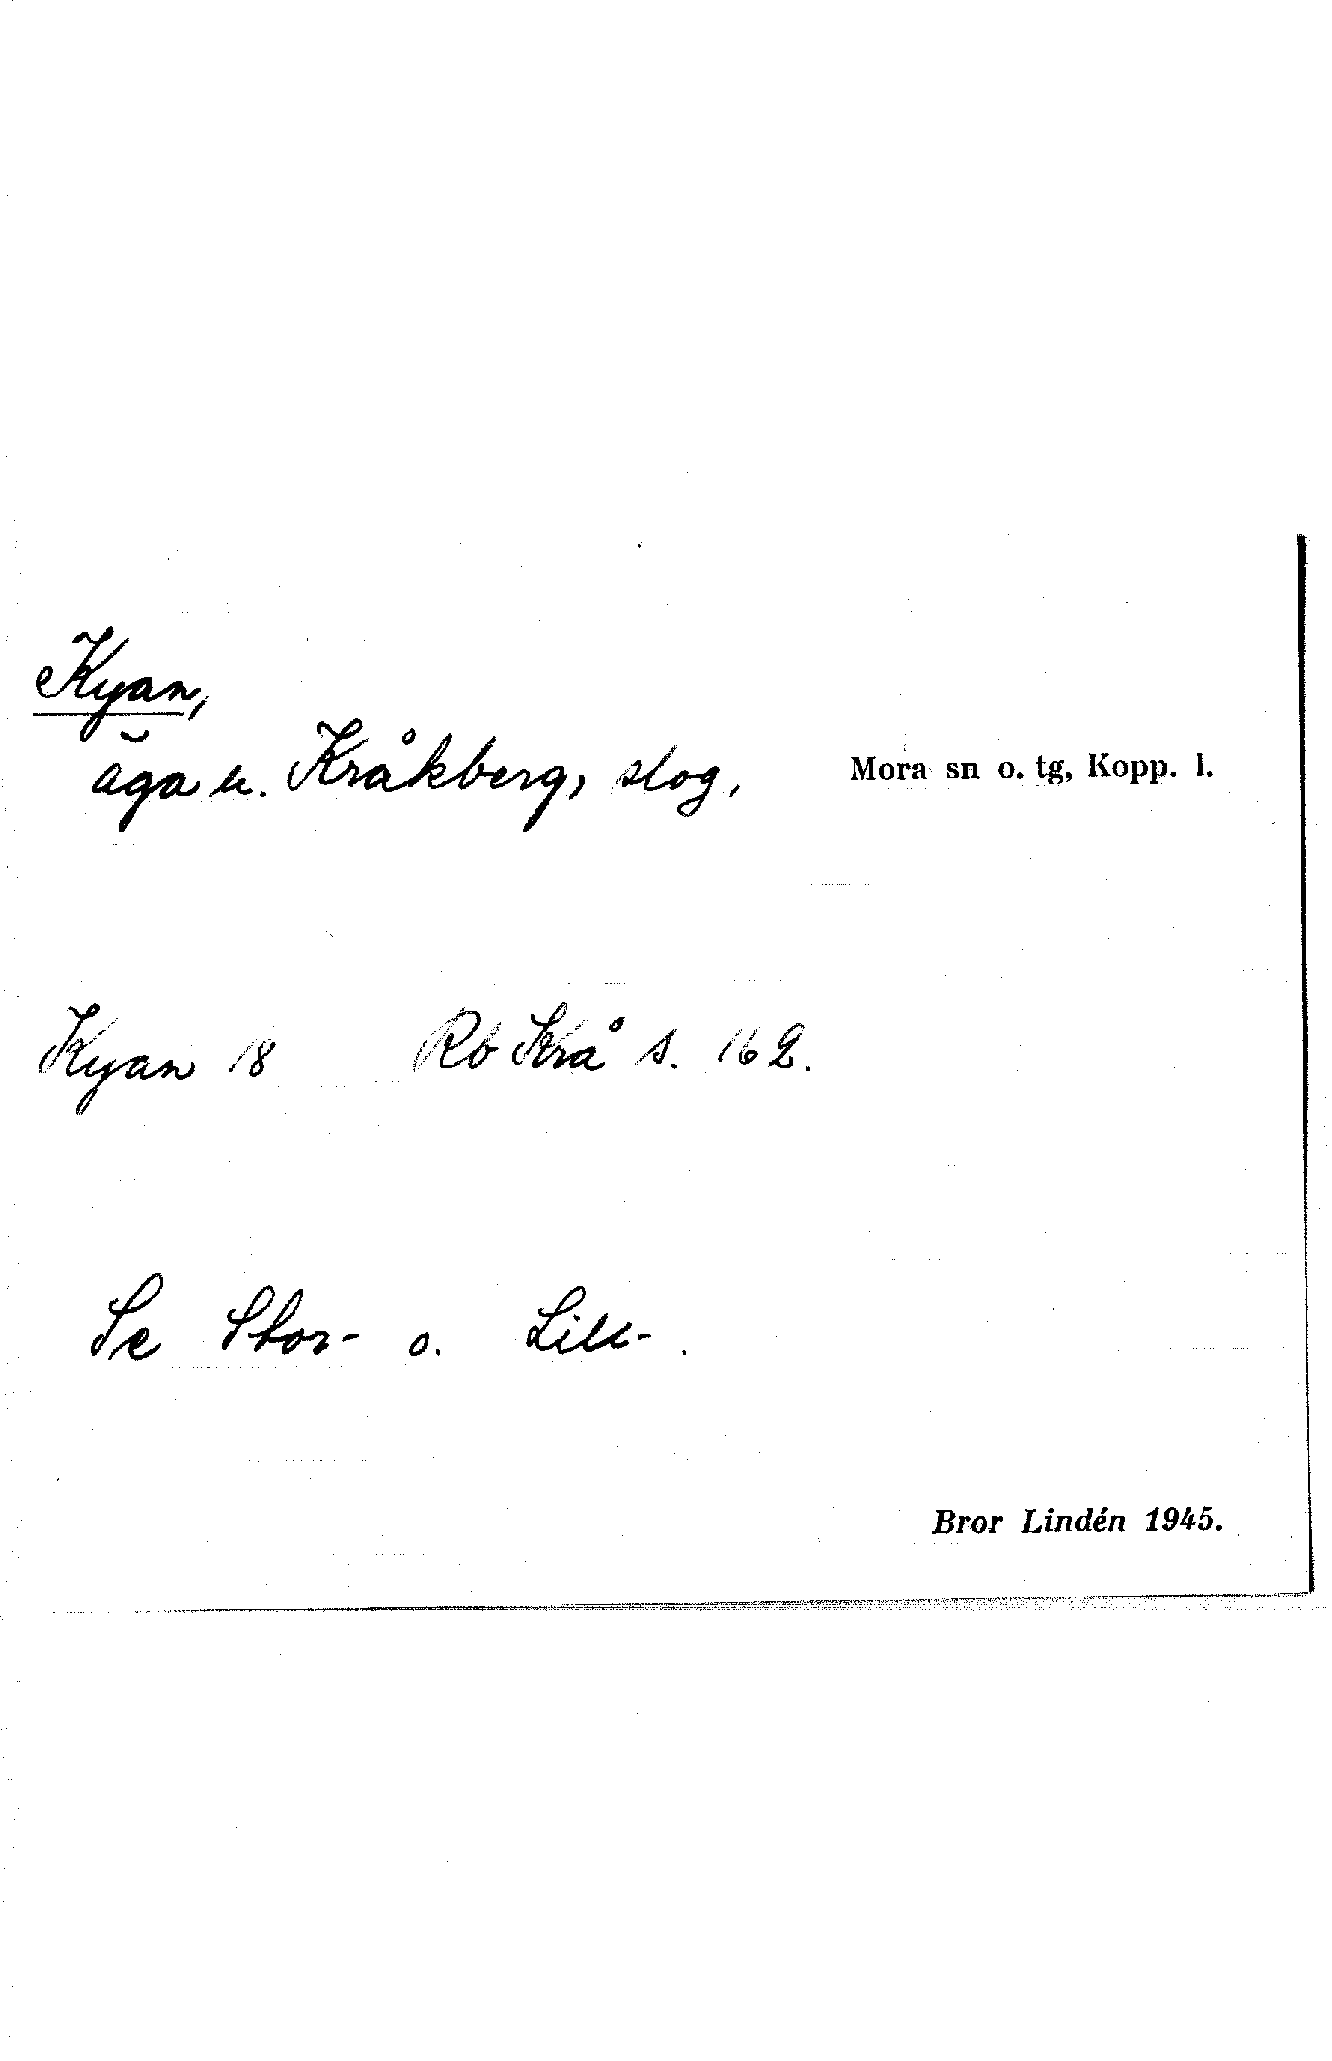 Kyan,
äga u. Kråkberg, slog, Mora sn o. tg, Kopp. l.
Kyan 18 Rb Krå s. 162.
Se Stor- o. Lill- .
Bror Lindén 1945.